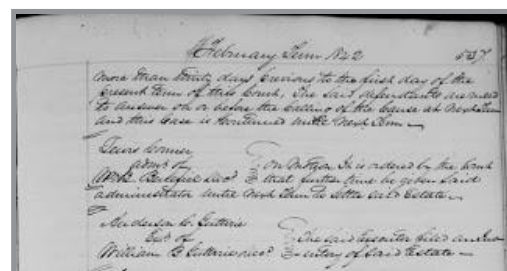 February Term 1842 537
more than thirty days previous to the first day of the
present term of this Court, The said defendants are ruled
to answer on or before the calling of the cause at next Term
and this case is continued until next Term
Lewis Conner
admr of
decd } On Motion It is ordered by the Court
that further time be given said
administrator until next Term to settle said Estate
Anderson C. Guthrie
Exr of
William B Guthrie decd } The said Executor filed an Inv
entory of said Estate